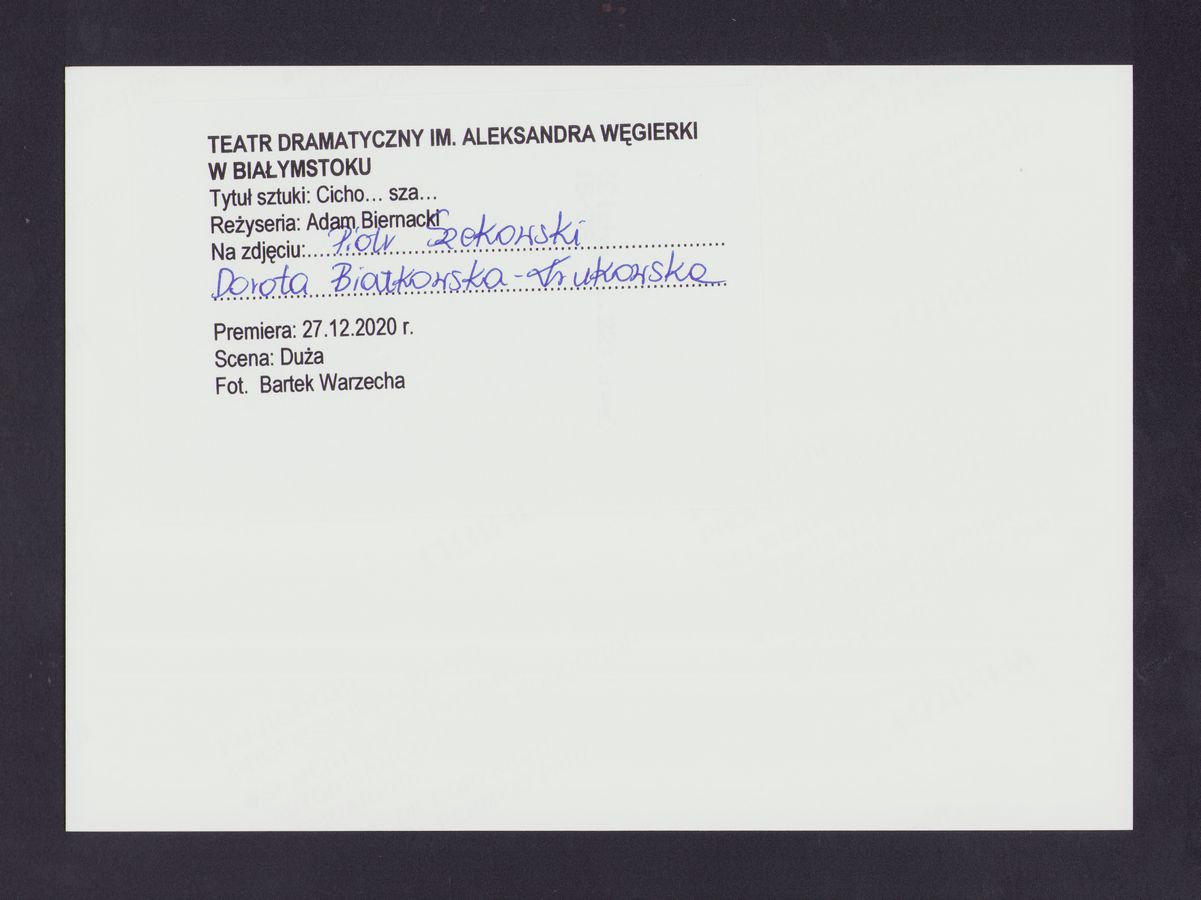 TEATR DRAMATYCZNY IM. ALEKSANDRA WĘGIERKI
W BIAŁYMSTOKU
Tytuł sztuki: Cicho... sza...
Reżyseria: Adam Biernacki
Na zdjęciu:.... Piotr Szekowski
Dorota Białkowska-Krukowska
Premiera: 27.12.2020 r.
Scena: Duża
Fot. Bartek Warzecha